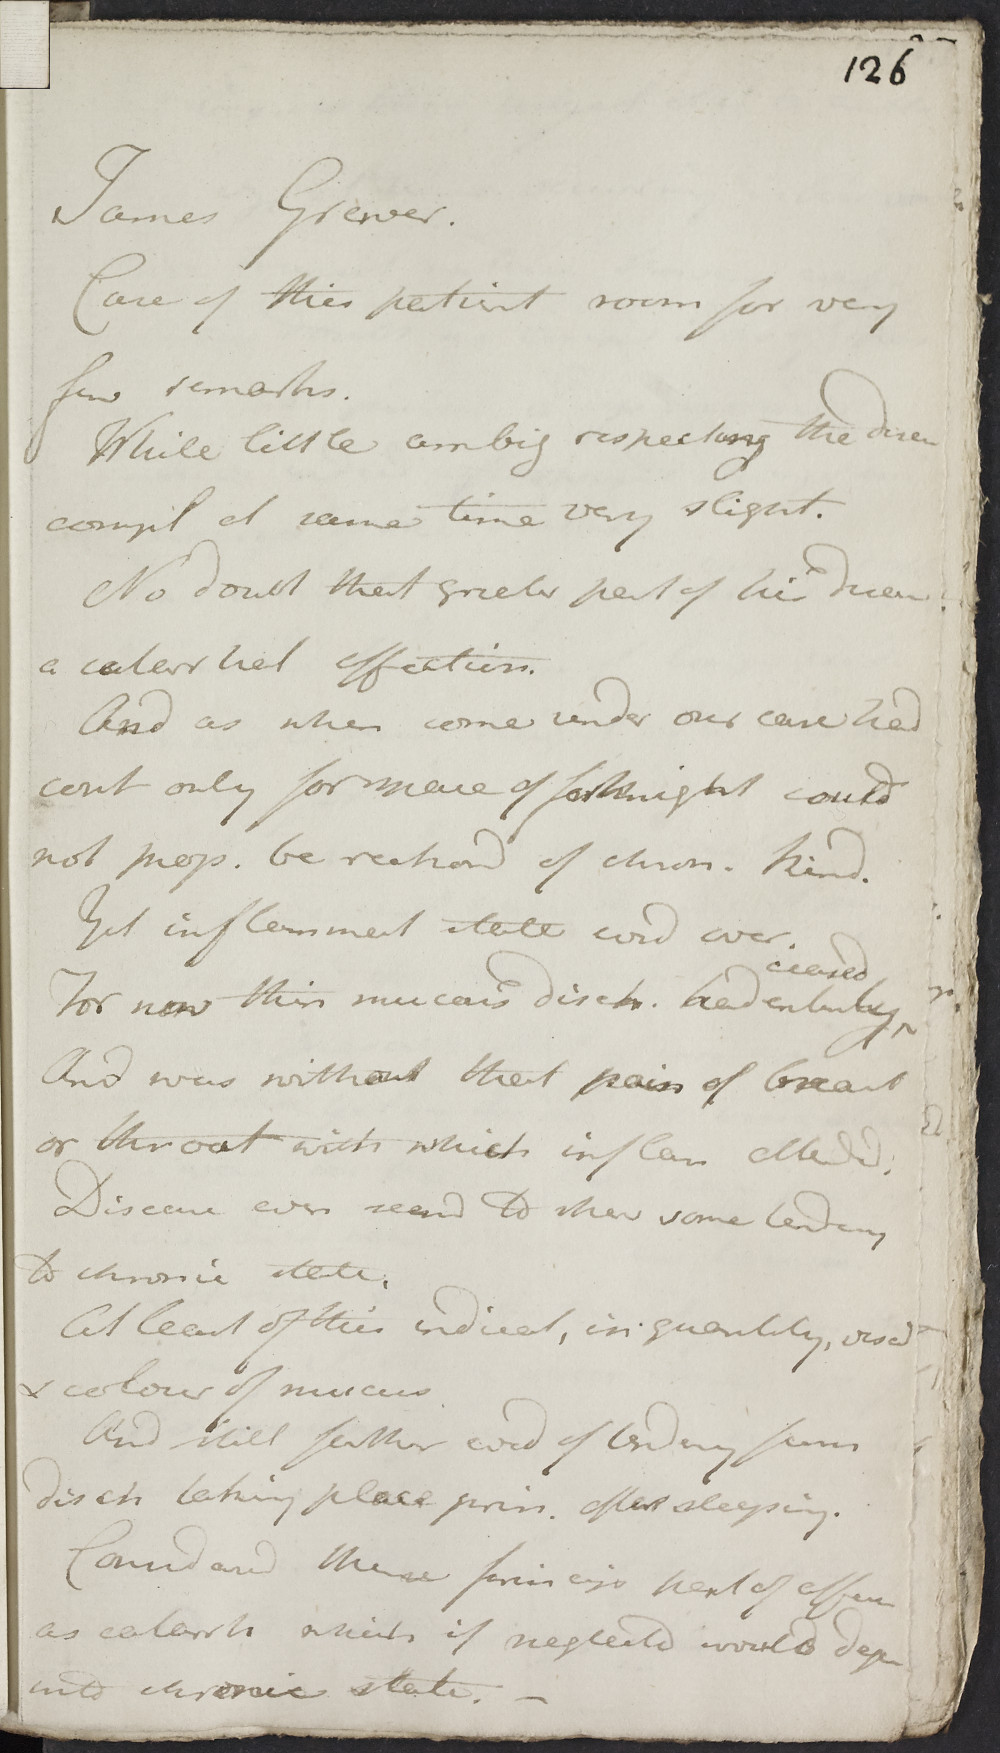 126
James Grewer.
Case of this patient room for very
few remarks.
While little ambig respecting the disea
compl at same time very slight.
No doubt that greater part of his diseas.
a catarrhal affection.
And as when come under our care had
cont only for space of fortnight could
not prop. be reckond of chron. kind.
Yet inflammat state evid over.
ceased
For now thin mucous disch. had entirely
And was without that pain of breast
or throat with which inflam attended.
Disease even seemd to shew some tendency
to chronic state.
At least of this indicat, in quantity, viscid
& colour of mucus
And still farther evid of tendency from
disch taking place prin. after sleeping.
Considered these princip part of affect
as catarrh which if neglected would degen
into chronic state. —